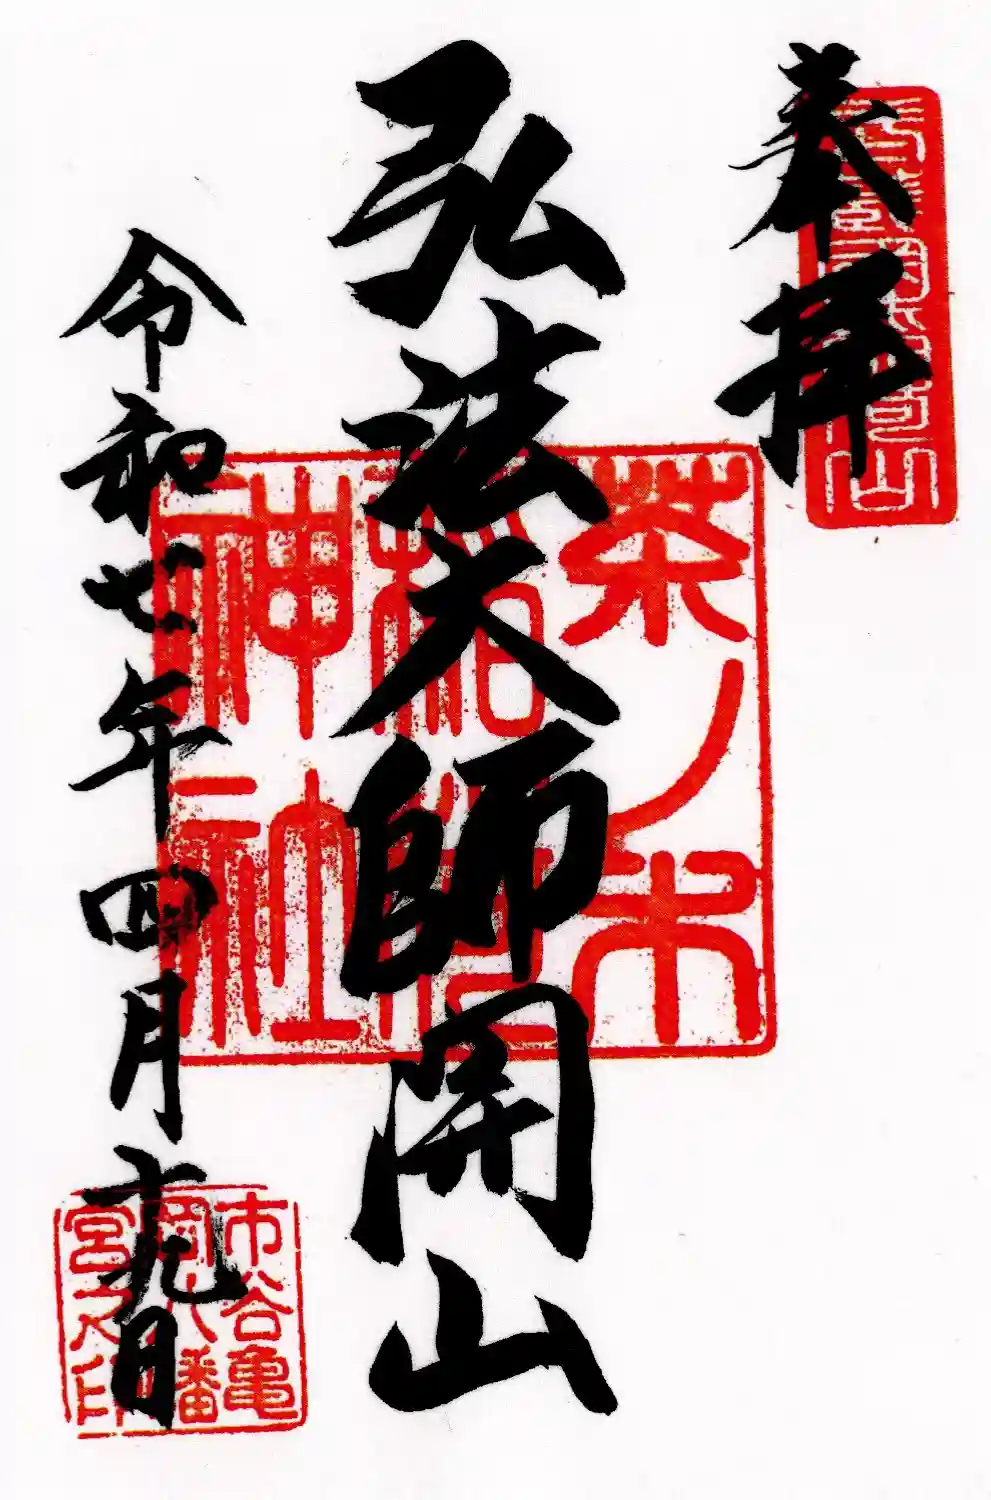 奉拝
弘法大師開山
茶ノ木
稲荷
神社
令和七年四月十九日
市谷亀
岡八幡
宮之印